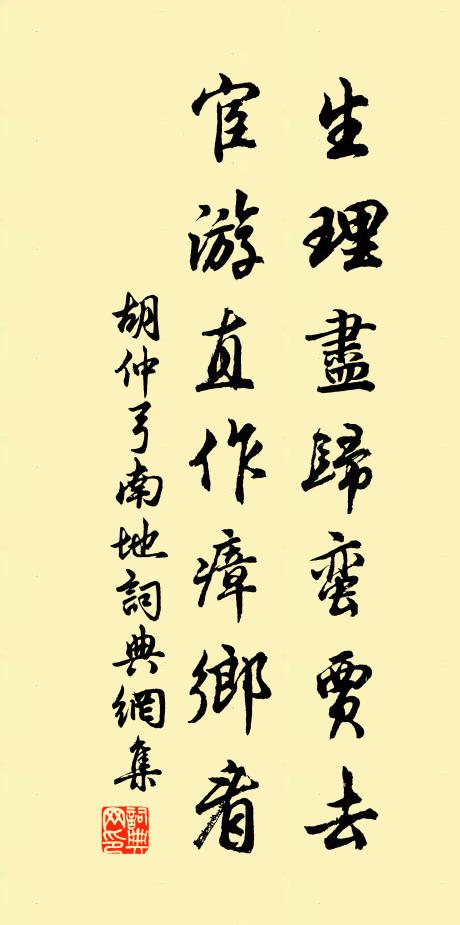 生理盡歸蛮賈去
宦游直作瘴鄉看
胡仲弓南地詞典網集
詞典网印